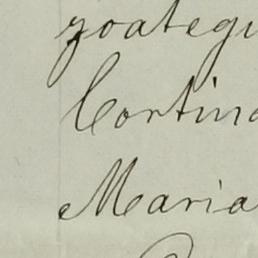 zoategu
Cortina
Maria